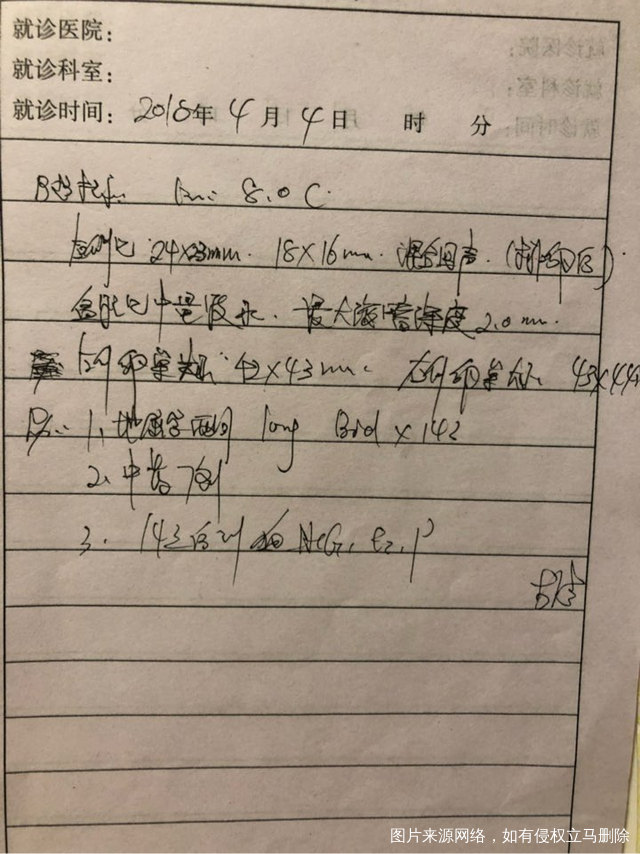 就诊医院：
就诊科室：
就诊时间：2018年4月4日 时 分
B超提示 Em: 8.0 C.
24×23mm. 18×16mm. 混合回声.(排卵后)
盆腔见中量液水. 最大液暗深度2.0cm.
右侧卵巢大小 42×43mm. 左侧卵巢大小 43×44
Rx: 1. 地屈孕酮 10mg Bid × 14天
2. 中药7剂
3. 14天后 HCG, E2, P
图片来源网络，如有侵权立马删除